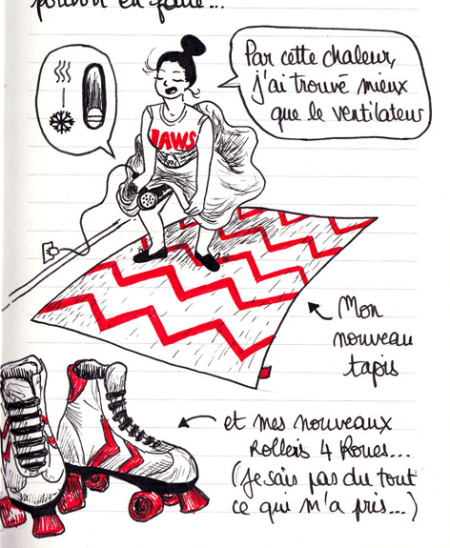 pouvoir en faire...
Par cette chaleur,
j'ai trouvé mieux
que le ventilateur
JAWS
Mon
nouveau
tapis
et mes nouveaux
Rollers 4 Roues...
(je sais pas du tout
ce qui m'a pris...)